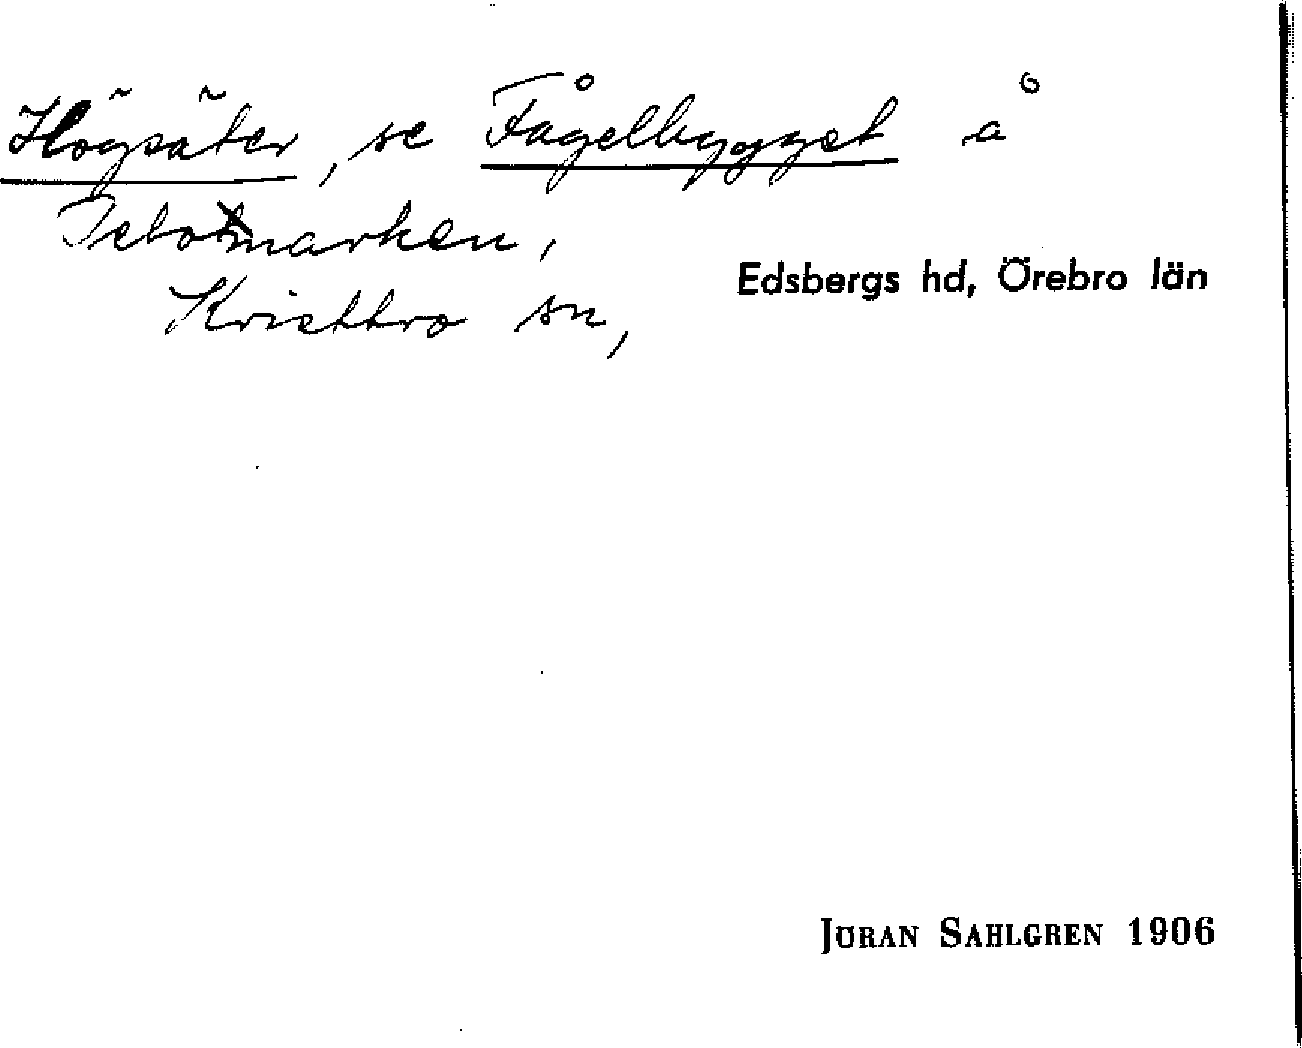 Högsäter, se Fågelbygget å
Tebomarken,
Kvistbro sn,
Edsbergs hd, Örebro län
JÖRAN SAHLGREN 1906